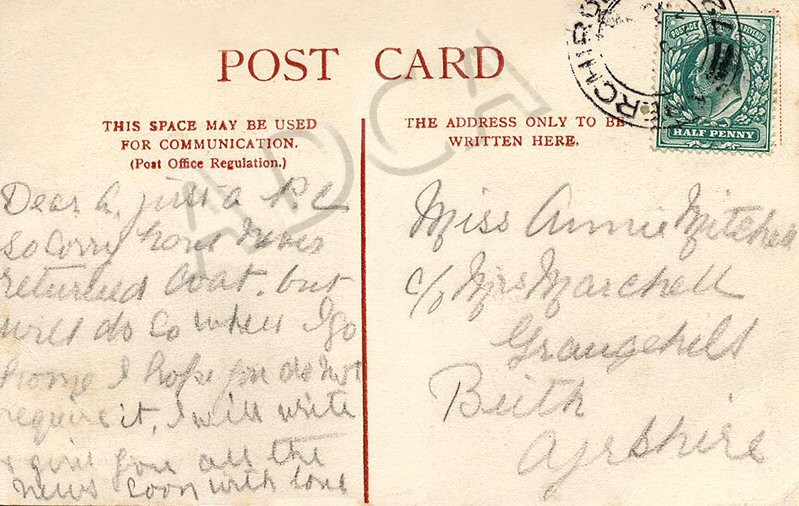 POST CARD
THIS SPACE MAY BE USED
FOR COMMUNICATION.
(Post Office Regulation.)
Dear A. just a P. C
so sorry have never
returned Coat. but
will do so when I go
home I hope you do not
require it, I will write
& give you all the
news soon with love
THE ADDRESS ONLY TO BE
WRITTEN HERE.
Miss Annie Mitchell
c/o Mrs Marshall
Grangehill
Beith
Ayrshire
POSTAGE REVENUE
HALF PENNY
ADCA